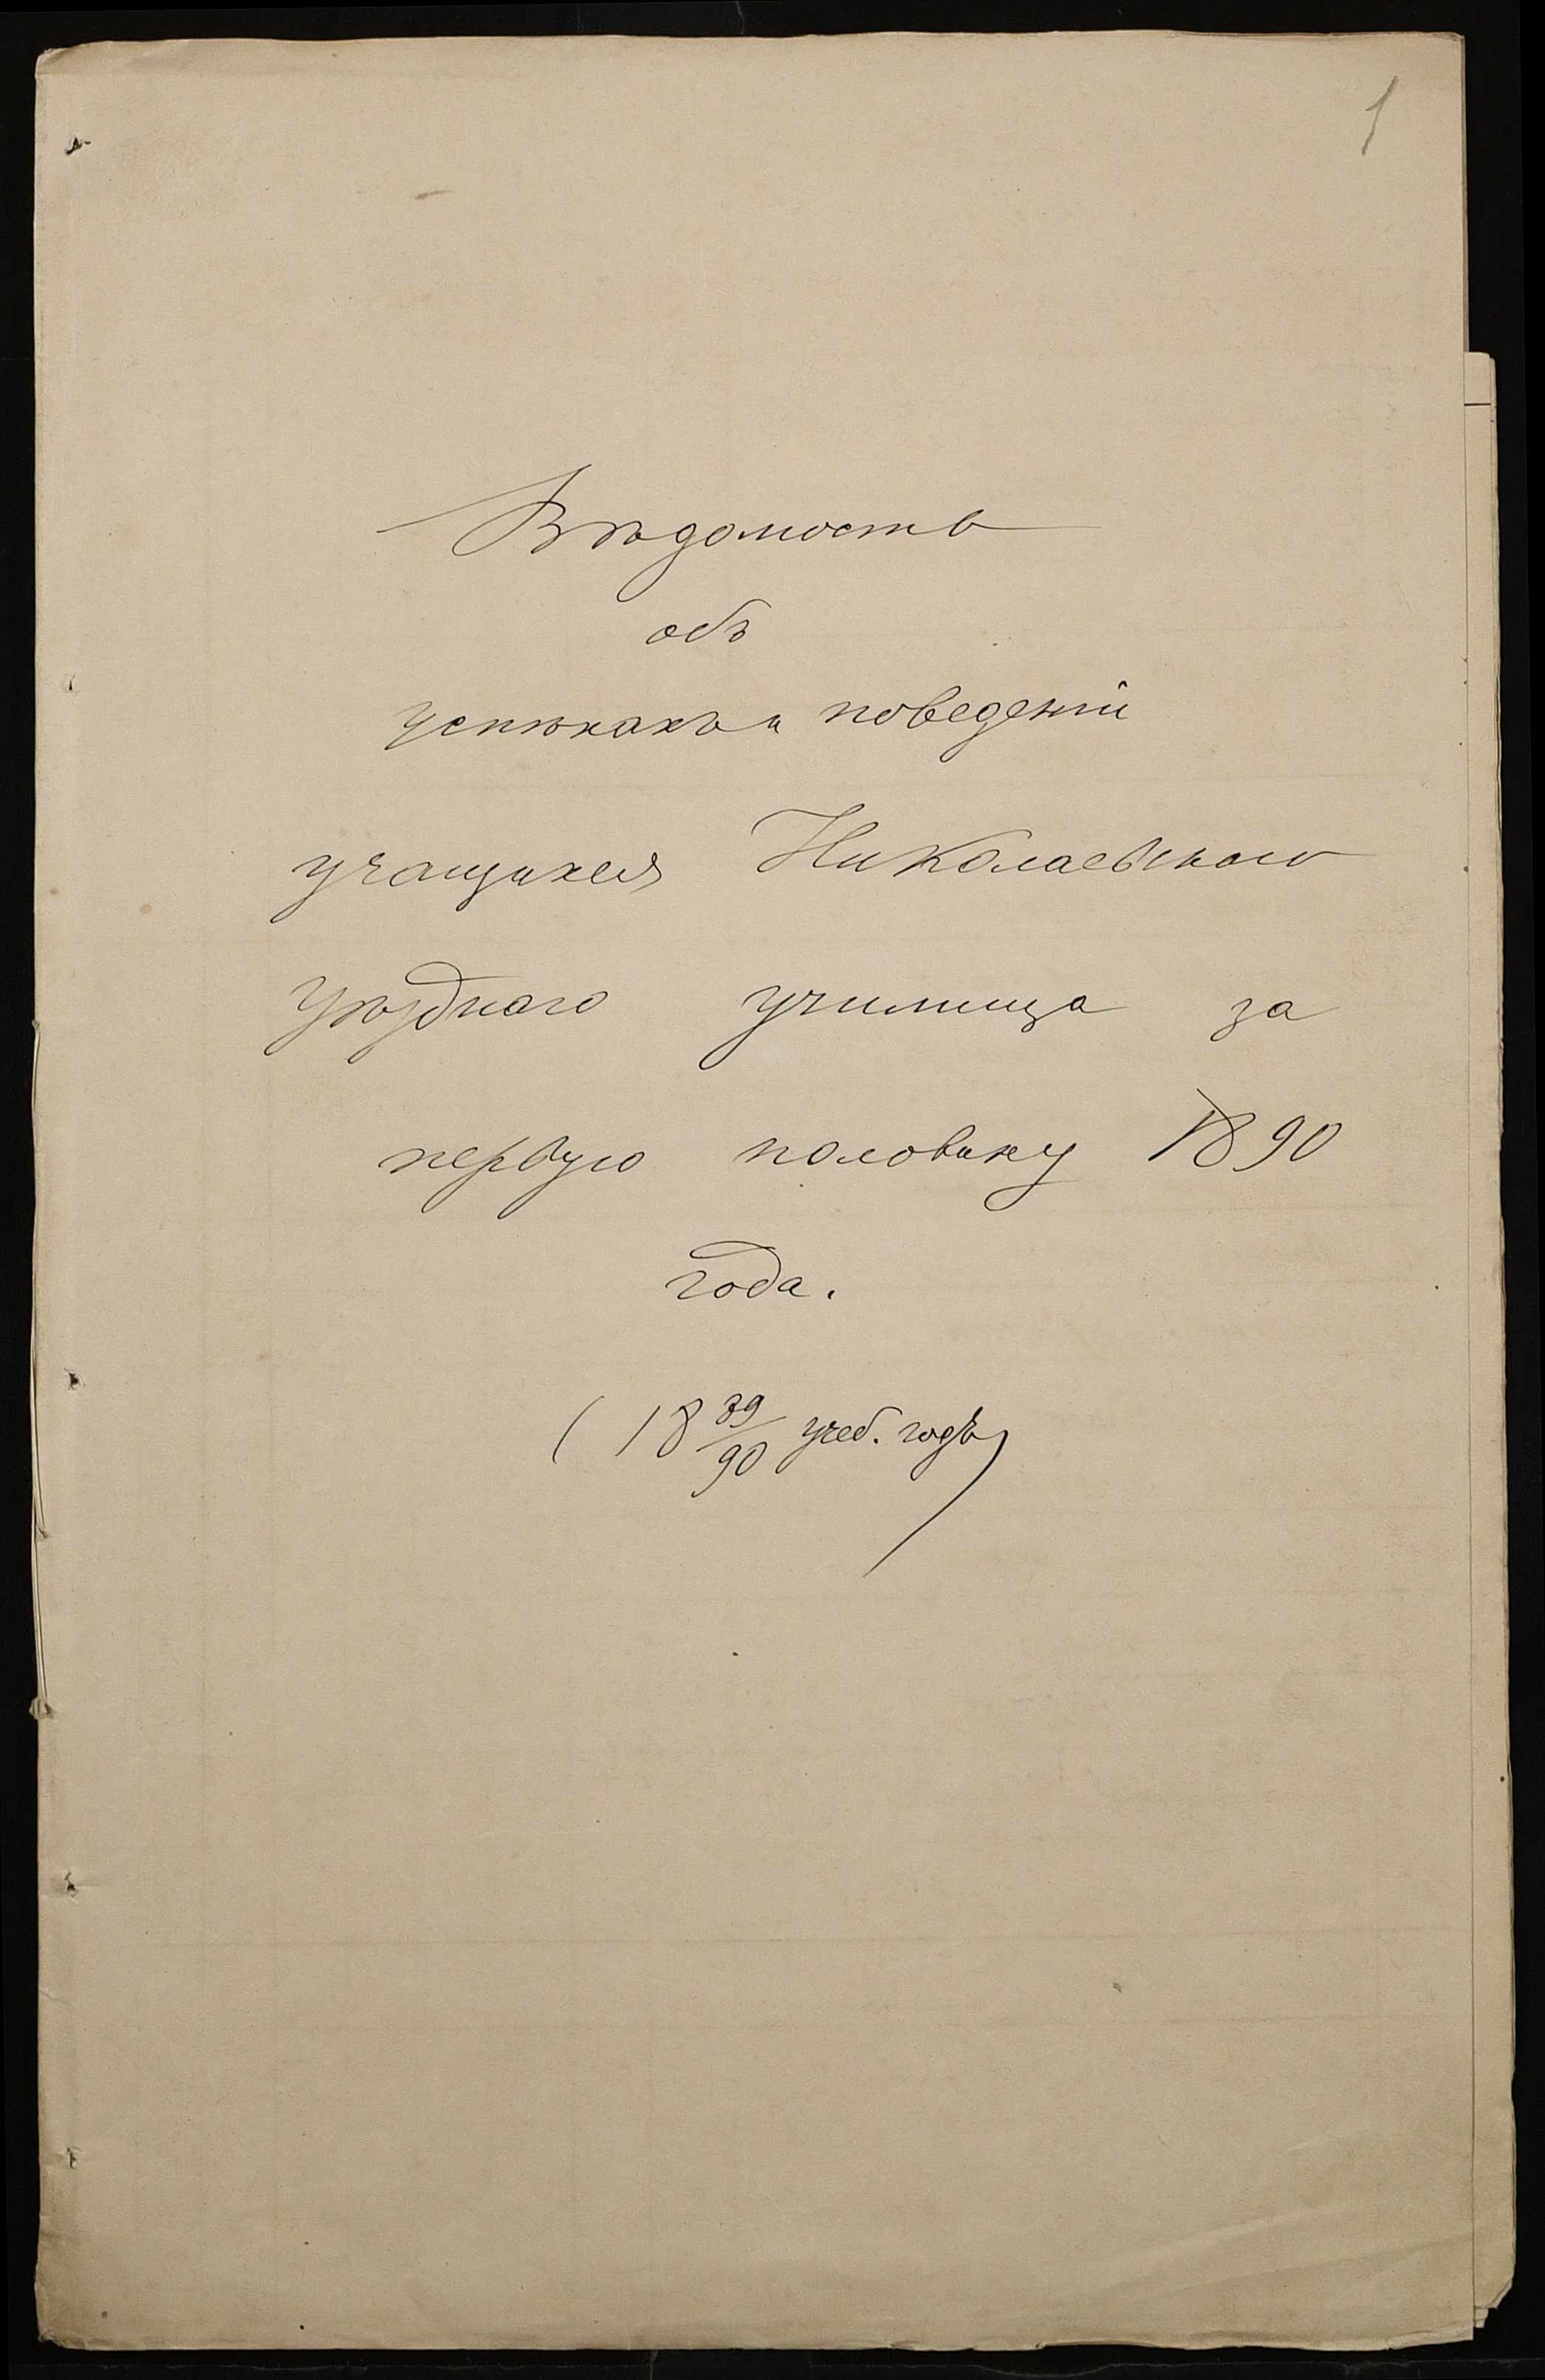 1
Вѣдомость
объ
успѣхахъ и поведеніи
учащихся Николаевскаго
Уѣзднаго училища за
первую половину 1890
года.
( 18 89/90 учеб. годъ)